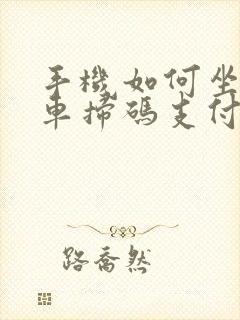 手機如何坐
車掃碼支付
路喬然